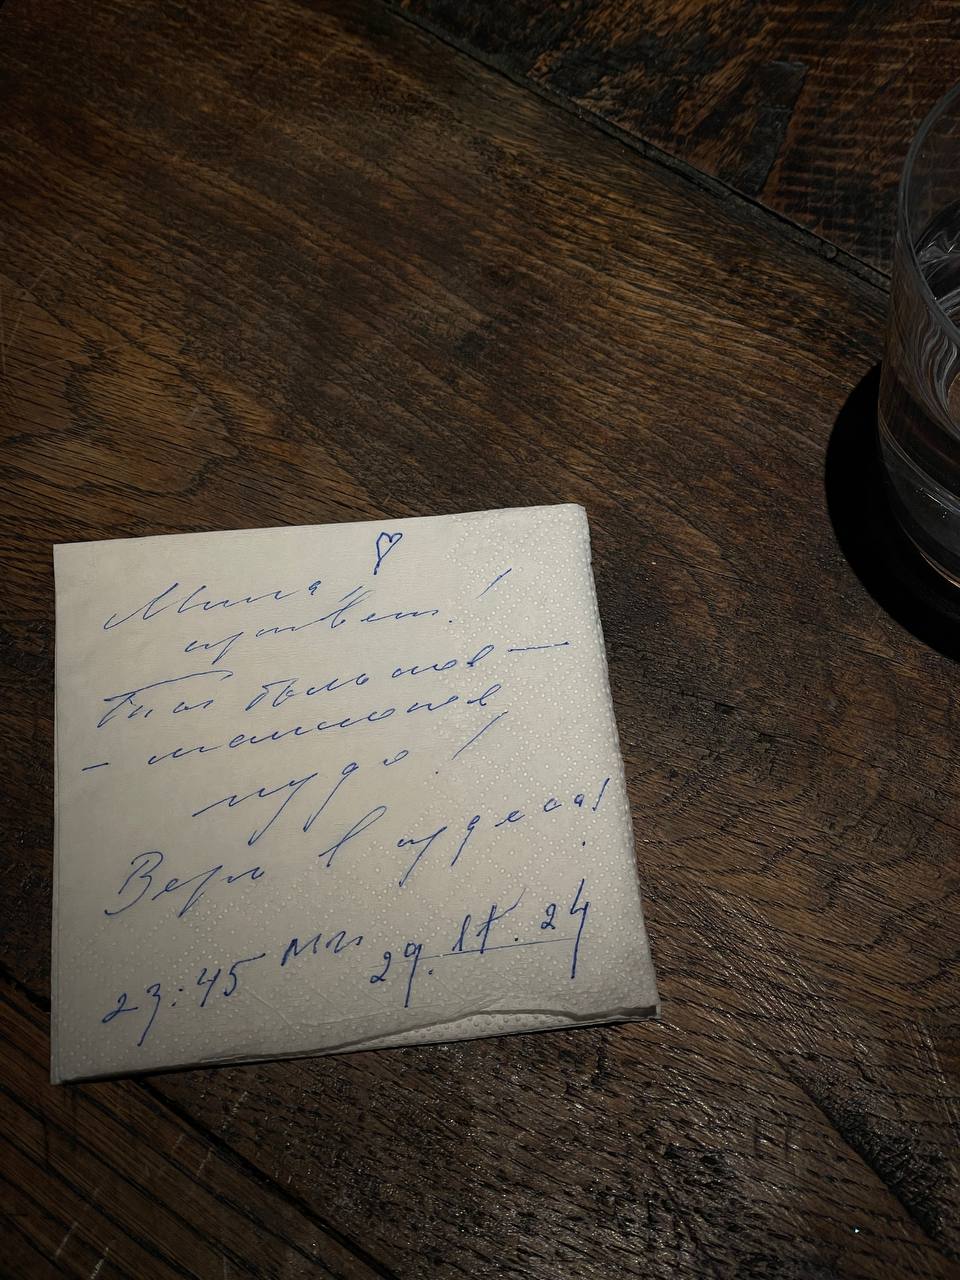 Мила,
привет!
Ты большое —
— маленькое
чудо!
Верь в чудеса!
23:45 Мск 29.IX.24